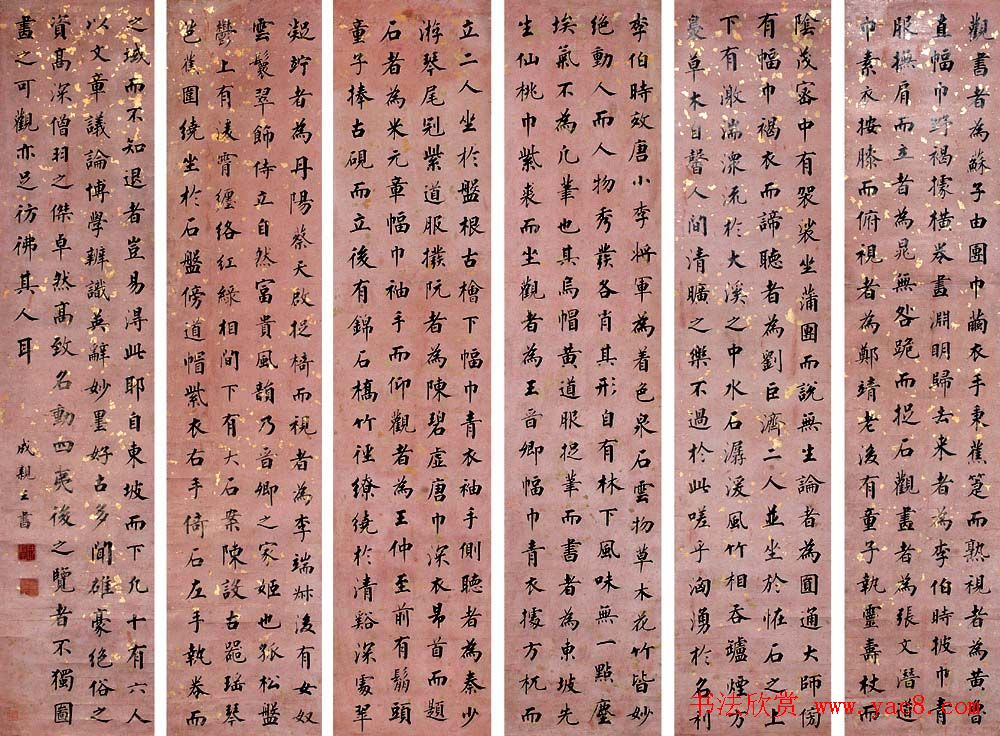 觀書者為蘇子由團巾繭衣手秉蕉箑而熟視者為黃魯
直幅巾野褐據橫卷畫淵明歸去来者為李伯時披巾青
服撫肩而立者為晁無咎跪而捉石觀畫者為張文潛道
巾素衣按膝而俯視者為鄭靖老後有童子執靈壽杖而
陰茂密中有袈裟坐蒲團而說無生論者為圓通大師傍
有幅巾褐衣而諦聽者為劉巨濟二人並坐於恠石之上
下有激湍潀流於大溪之中水石潺湲風竹相吞罏煙方
裊草木自馨人間清曠之樂不過於此嗟乎洶湧於名利
李伯時效唐小李將軍為着色泉石雲物草木花竹皆妙
絕動人而人物秀發各肖其形自有林下風味無一點塵
埃氣不為凡筆也其烏帽黃道服捉筆而書者為東坡先
生仙桃巾紫裘而坐觀者為王晉卿幅巾青衣據方杌而
立二人坐於盤根古檜下幅巾青衣袖手側聽者為秦少
游琴尾冠紫道服撥阮者為陳碧虛唐巾深衣昂首而題
石者為米元章幅巾袖手而仰觀者為王仲至前有鬅頭
童子捧古硯而立後有錦石橋竹徑繚繞於清谿深處翠
凝竚者為丹陽蔡天啟捉椅而視者為李端叔後有女奴
雲鬟翠飾侍立自然富貴風韻乃晉卿之家姬也孤松盤
鬱上有凌霄纏絡紅綠相間下有大石案陳設古器瑤琴
芭蕉圍繞坐於石盤傍道帽紫衣右手倚石左手執卷而
之域而不知退者豈易得此耶自東坡而下凡十有六人
以文章議論博學辨識英辭妙墨好古多聞雄豪絕俗之
資高深僧羽之傑卓然高致名動四夷後之覽者不獨圖
畫之可觀亦足彷彿其人耳
成親王書
书法欣赏 www.yac8.com